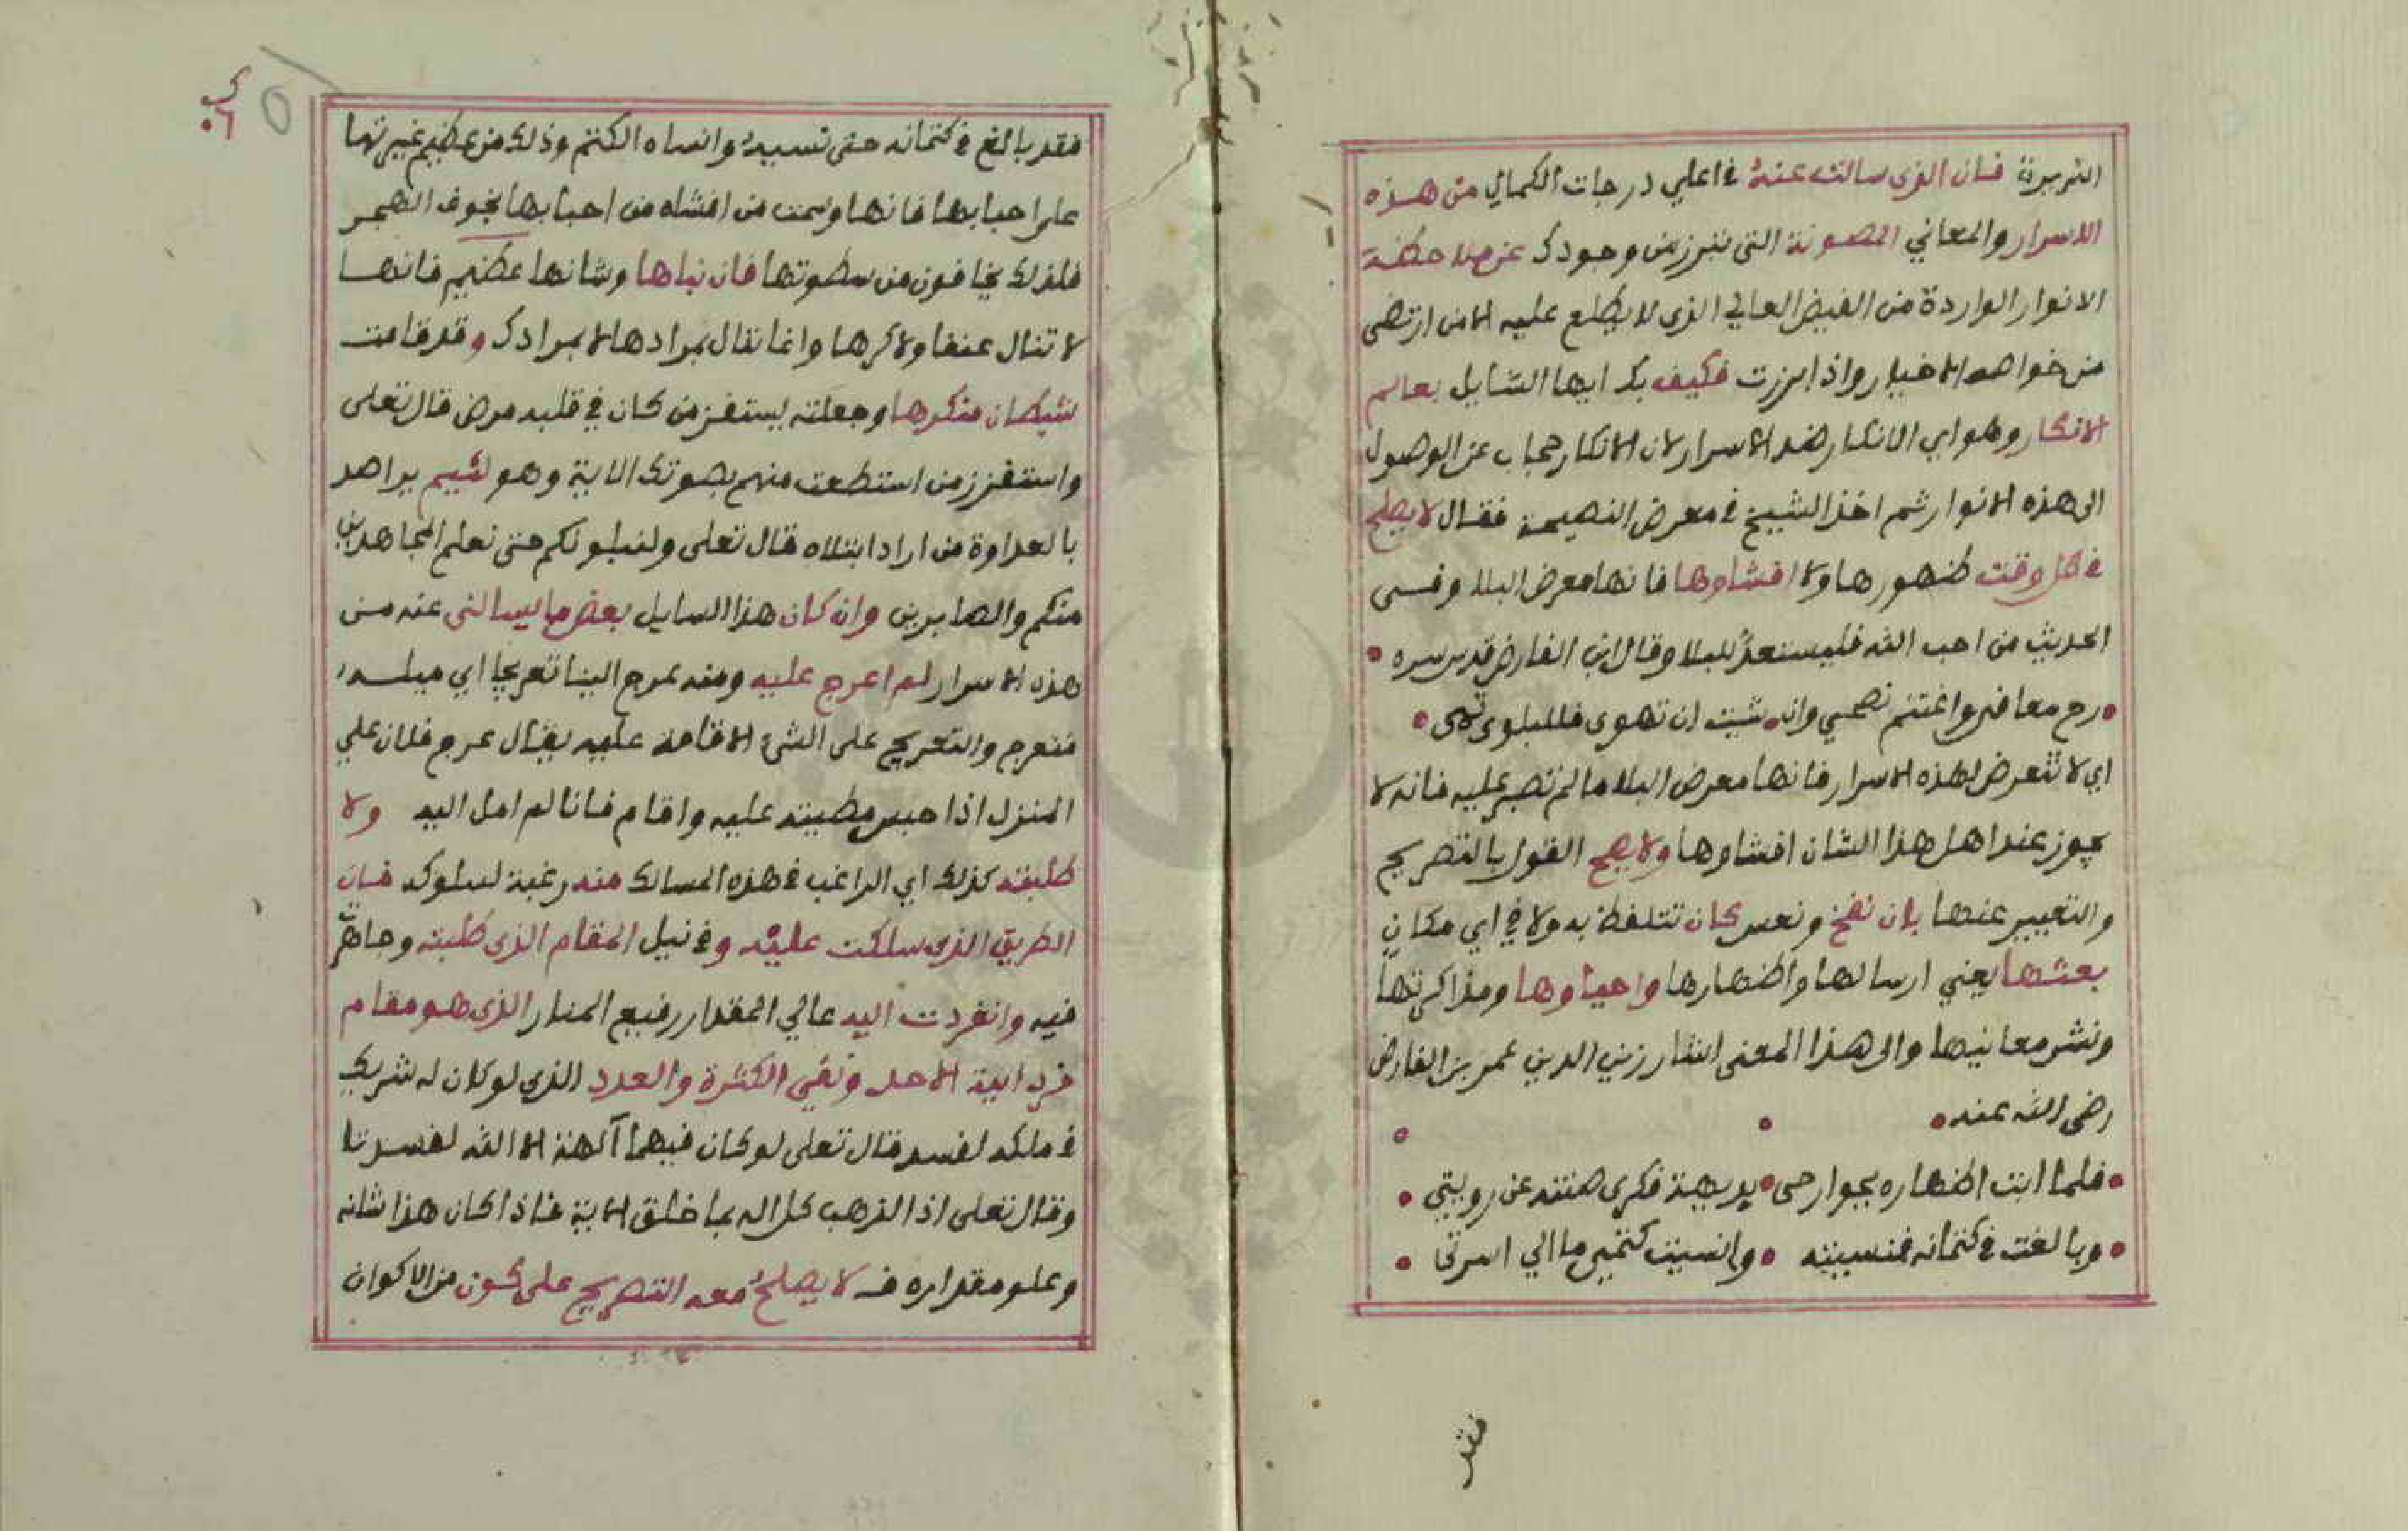 فان الذي سالت عنهُ في اعلي درجات الكمال من هذه
الاسرار والمعاني المصونة التى تبرز من وجودك عن ملاحظة
الانوار الواردة من الفيض العالي الذي لا يطلع عليه الا من ارتضى
من خواصه الاخيار واذا برزت فكيف بك ايها السّايل بعالم
الانكار وهو اي الانكار ضد الاسرار لان الانكار حجاب عن الوصول
الى هذه الانوار ثم اخذ الشيخ في معرض النصيحة فقال لا يصلح
في كل وقت ظهورها ولا افشاوها فانها معرض البلا وفى
الحديث من احب الله فليستعدّ للبلا وقال ابن الفارض قدس سره
رح معافى واغتنم نصحي وان شيت ان تهوى فللبلوى تهى
اي لا تتعرض لهذه الاسرار فانها معرض البلا ما لم تصبر عليه فانه لا
يجوز عند اهل هذا الشان افشاوها ولا يصح القول بالتصريح
والتعبير عنها بان تتلفظ به ولا في اي مكان
بعثها يعني ارسالها واظهارها واحياوها ومذاكرتها
ونشر معانيها والى هذا المعنى اشار زين الدين عمر بن الفارض
رضى الله عنه
فلما ابت اظهاره بجوارحى بديهة فكرى صنته عن رويتي
وبالغت في كتمانه فنسيته وانسيت كتمي ما الي اسرتا
فقد
فقد بالغ في كتمانه حتى نسيهُ وانساه الكتم وذلك من عظيم غيرتها
على احبابها فانها وسمت من افشاه من احبابها بخوف الهجر
فلذلك يخافون من سطوتها فان نباها وشانها عظيم فانها
لا تنال عنفا ولا كرها وانما تنال بمرادها لا بمرادك وقد قامت
شيطان منكرها وجعلته يستفز من كان في قلبه مرض قال تعلى
واستفزز من استطعت منهم بصوتك الاية وهو لئيم
بالعداوة من اراد ابتلاه قال تعلى ولنبلونكم حتى نعلم المجاهدين
منكم والصابرين وان كان هذا السايل بعض ما يسالنى عنه من
هذه الاسرار لم اعرج عليه ومنه عرج الينا تعريجا اي ميله
فتعرج والتعريج على الشئ الاقامة عليه يقال عرج فلان علي
المنزل اذا حبس مطيته عليه واقام فانا لم امل اليه ولا
كلفته كذلك اي الراغب في هذه المسالك منه رغبة لسلوكه فان
الطريق الذى سلكت عليه وفي نيل المقام الذى طلبته وجاهرت
فيه وانفردت اليه عالي المقدار رفيع المنار الذى هو مقام
فردانية الاحد ونفي الكثرة والعدد الذى لو كان له شريك
في ملكه لفسد قال تعلى لو كان فيهما آلهة الا الله لفسدتا
وقال تعلى اذا لذهب كل اله بما خلق الاية فاذا كان هذا شانه
وعلو مقداره ف لا يصلح معه التصريح على كون من الاكوان